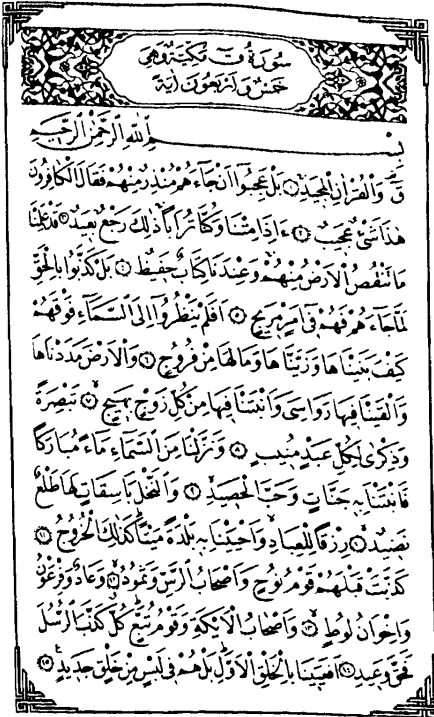 سُورَةُ قٓ مَكِّيَّةٌ وَهِيَ
خَمْسٌ وَأَرْبَعُونَ اٰيَةً
بِسْمِ اللّٰهِ الرَّحْمٰنِ الرَّحِيمِ
قٓ وَالْقُرْاٰنِ الْمَجِيدِ ١ بَلْ عَجِبُٓوا اَنْ جَٓاءَهُمْ مُنْذِرٌ مِنْهُمْ فَقَالَ الْكَافِرُونَ
هٰذَا شَيْءٌ عَجِيبٌ ٢ ءَاِذَا مِتْنَا وَكُنَّا تُرَاباً ذٰلِكَ رَجْعٌ بَعِيدٌ ٣ قَدْ عَلِمْنَا
مَا تَنْقُصُ الْاَرْضُ مِنْهُمْ وَعِنْدَنَا كِتَابٌ حَفِيظٌ ٤ بَلْ كَذَّبُوا بِالْحَقِّ
لَمَّا جَٓاءَهُمْ فَهُمْ فِٓي اَمْرٍ مَرِيجٍ ٥ اَفَلَمْ يَنْظُرُٓوا اِلَى السَّمَٓاءِ فَوْقَهُمْ
كَيْفَ بَنَيْنَاهَا وَزَيَّنَّاهَا وَمَا لَهَا مِنْ فُرُوجٍ ٦ وَالْاَرْضَ مَدَدْنَاهَا
وَاَلْقَيْنَا فِيهَا رَوَاسِيَ وَاَنْبَتْنَا فِيهَا مِنْ كُلِّ زَوْجٍ بَهِيجٍ ٧ تَبْصِرَةً
وَذِكْرٰى لِكُلِّ عَبْدٍ مُنِيبٍ ٨ وَنَزَّلْنَا مِنَ السَّمَٓاءِ مَٓاءً مُبَارَكاً
فَاَنْبَتْنَا بِهِ جَنَّاتٍ وَحَبَّ الْحَصِيدِ ٩ وَالنَّخْلَ بَاسِقَاتٍ لَهَا طَلْعٌ
نَضِيدٌ ١٠ رِزْقاً لِلْعِبَادِ وَاَحْيَيْنَا بِهِ بَلْدَةً مَيْتاً كَذٰلِكَ الْخُرُوجُ ١١
كَذَّبَتْ قَبْلَهُمْ قَوْمُ نُوحٍ وَاَصْحَابُ الرَّسِّ وَثَمُودُ ١٢ وَعَادٌ وَفِرْعَوْنُ
وَاِخْوَانُ لُوطٍ ١٣ وَاَصْحَابُ الْاَيْكَةِ وَقَوْمُ تُبَّعٍ كُلٌّ كَذَّبَ الرُّسُلَ
فَحَقَّ وَعِيدِ ١٤ اَفَعَيِينَا بِالْخَلْقِ الْاَوَّلِ بَلْ هُمْ فِي لَبْسٍ مِنْ خَلْقٍ جَدِيدٍ ١٥